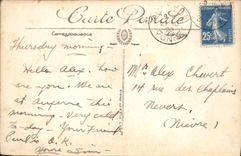 Carte Postale
Correspondance
Thursday morning -
Hello Alex. how
are you. We are
at Auxerre this
morning - Very cold
to-day - Your Friend
O.K.
25
Mr Alex Chevert
14 rue des Chaplains
Nevers
(Nièvre)